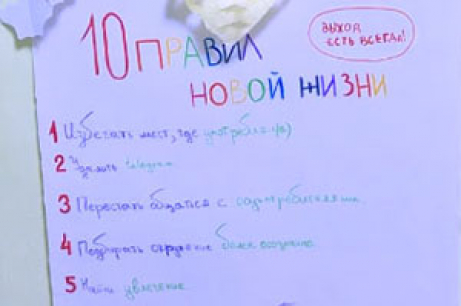 10 ПРАВИЛ
НОВОЙ ЖИЗНИ
ВЫХОД
ЕСТЬ ВСЕГДА!
1 Избегать мест, где употреблял(а)
2 Удалить telegram
3 Перестать общаться с соупотребителями
4 Подбирать окружение более осознанно
5 Найти увлечение